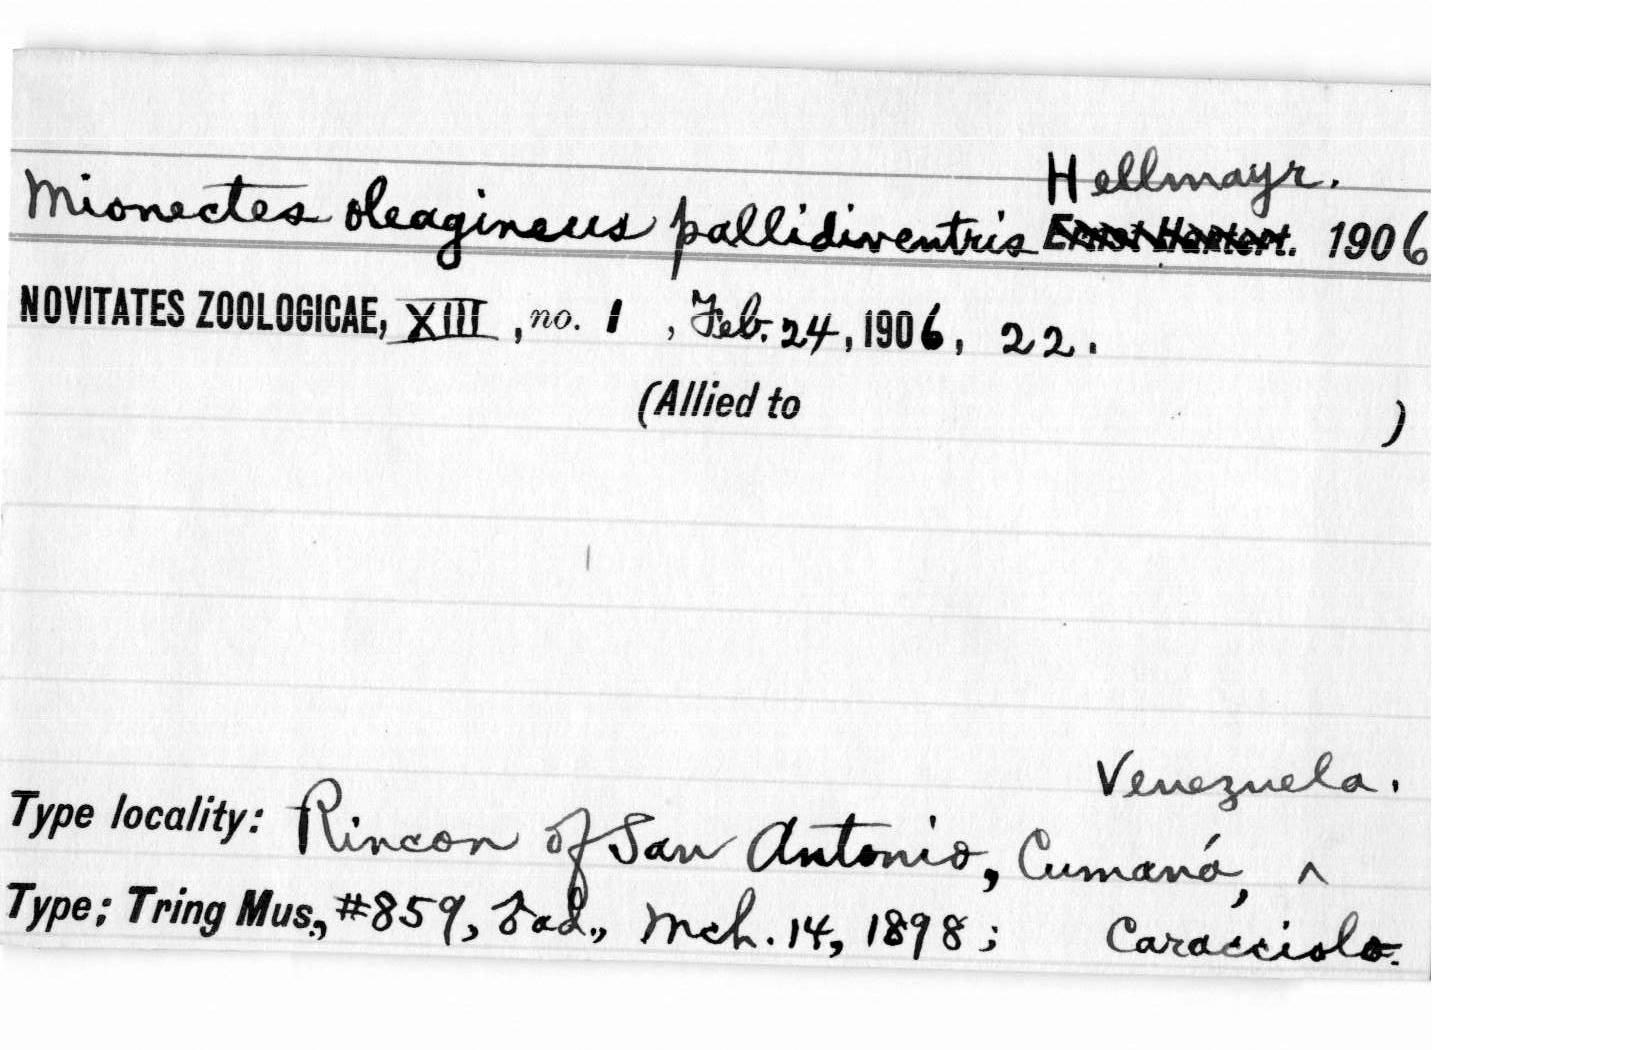 Hellmayr.
Mionectes oleagineus pallidiventris Ernst Hartert. 1906
NOVITATES ZOOLOGICAE, XIII, no. 1, Feb. 24, 1906, 22.
(Allied to )
Venezuela.
Type locality: Rincon of San Antonio, Cumaná, ^
Type; Tring Mus., #859, ♂ad., Mch. 14, 1898; Caracciolo.